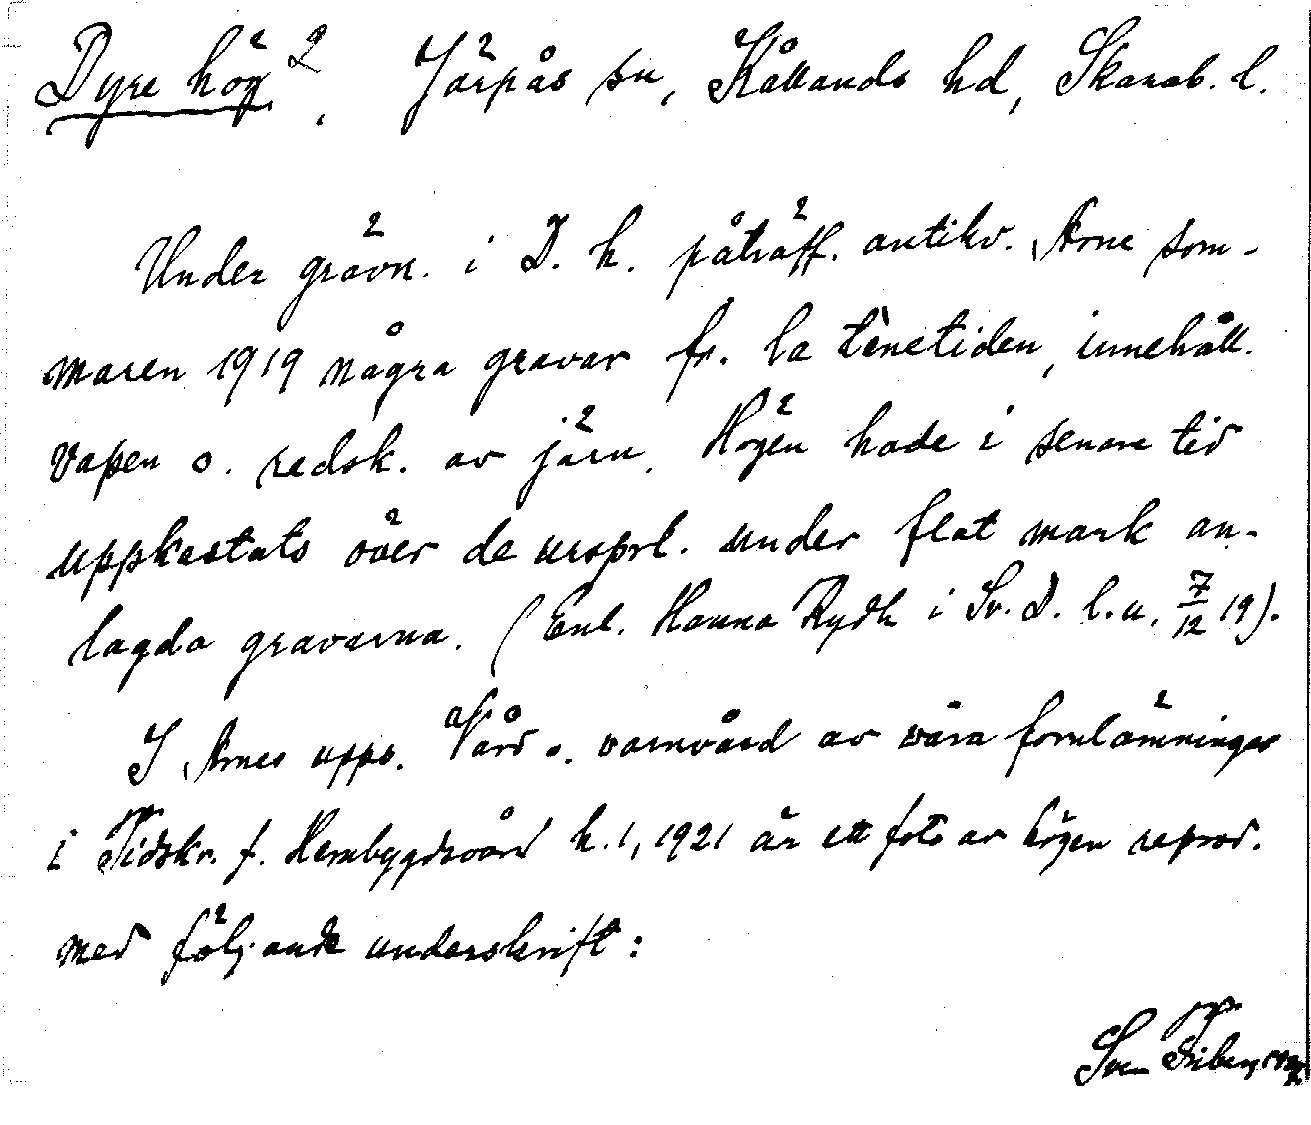 Dyre hög 2, Järpås sn, Kållands hd, Skarab. l.
Under grävn. i D. h. påträff. antikv. Arne som-
maren 1919 några gravar fr. la tènetiden, innehåll.
vapen o. redsk. av järn. Högen hade i senare tid
uppkastats över de ursprl. under flat mark an-
lagda gravarna. (Enl. Hanna Rydh i Sv. D. l.u. 7/12 19).
I Arnes upps. Vård o. vanvård av våra fornlämningar
i Tidskr. f. Hembygdsvård h. 1, 1921 är ett foto av högen reprod.
med följande underskrift:
Sven